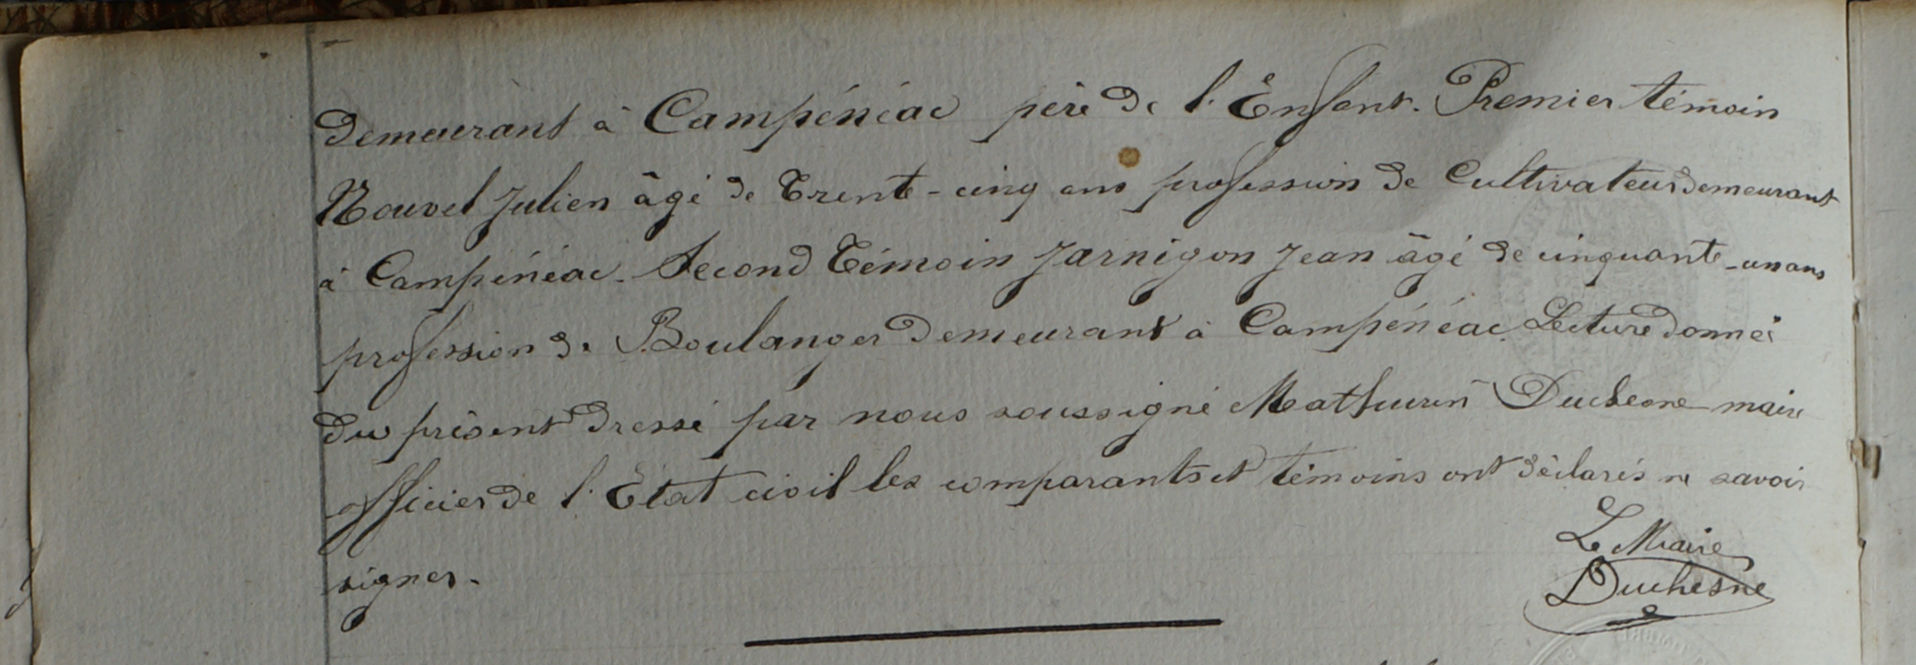 demeurant à Campénéac père de l'Enfant. Premier témoin
Nouvel Julien âgé de Trente-cinq ans profession de Cultivateur demeurant
à Campénéac. Second Témoin Jarnigon Jean âgé de cinquante-un ans
profession de Boulanger demeurant à Campénéac. Lecture donnée
du présent dressé par nous soussigné Mathurin Duchesne maire
officier de l'État civil les comparants et témoins ont déclarés ne savoir
signer.
Le Maire
Duchesne